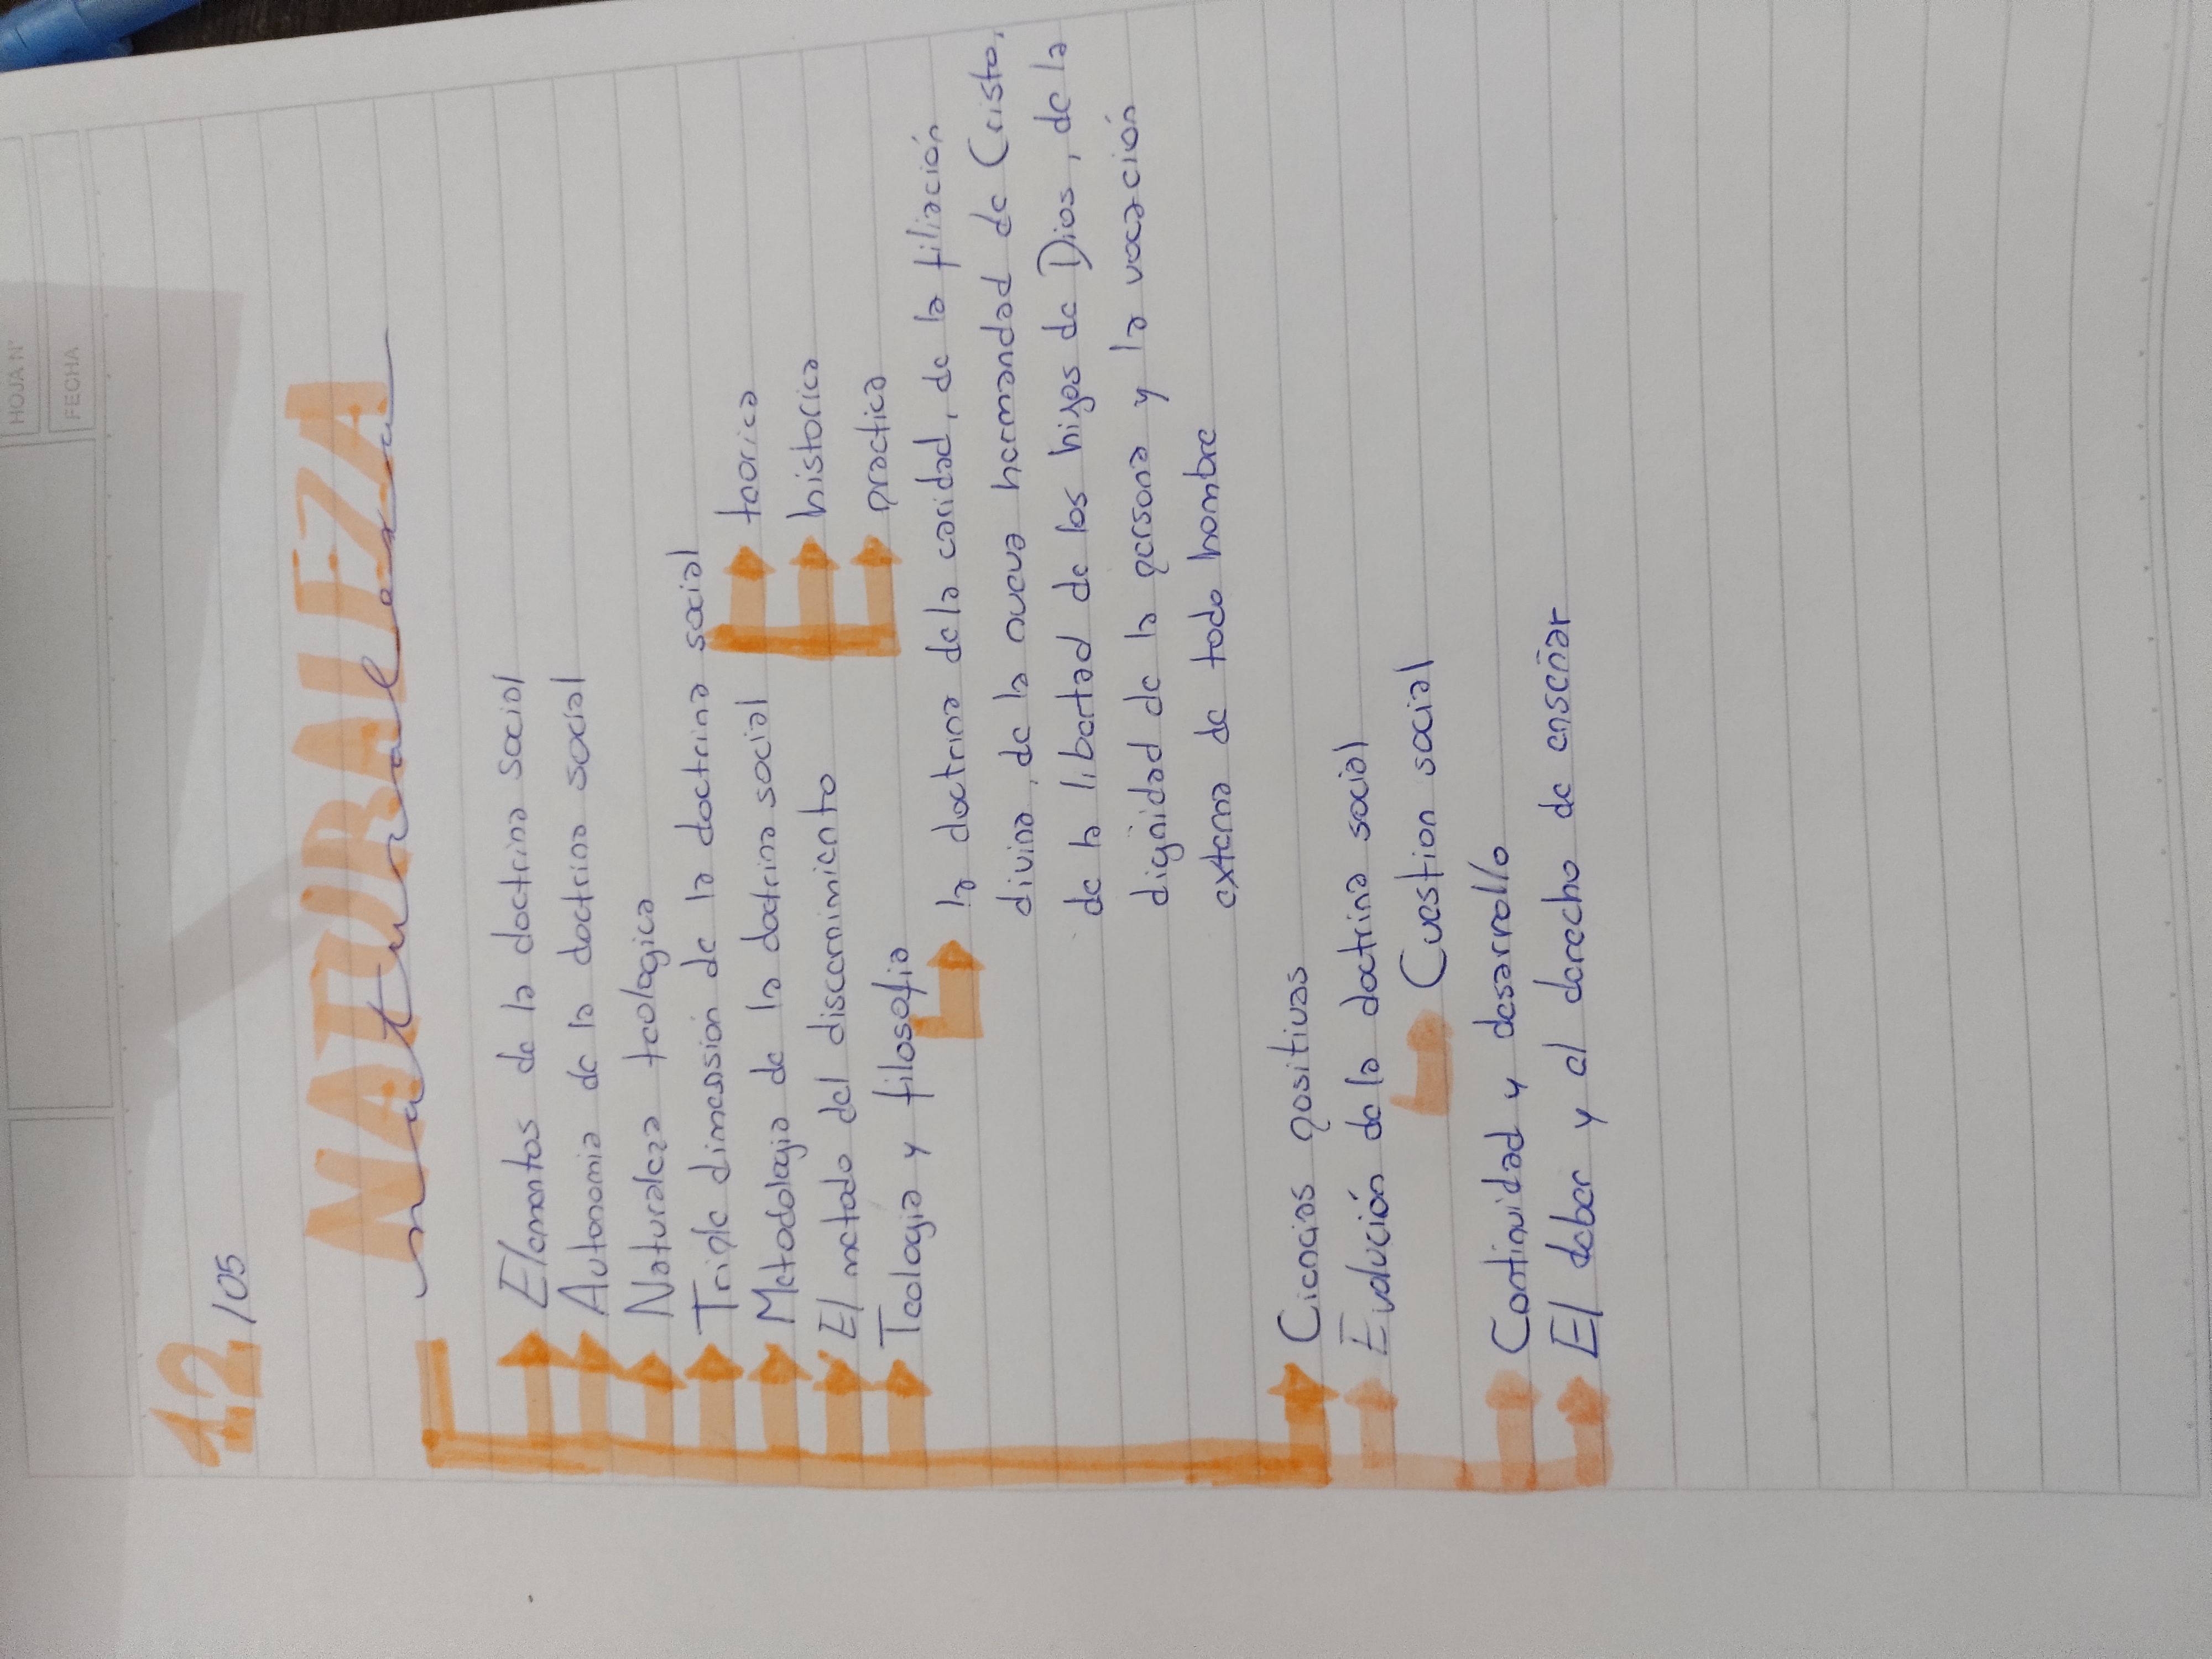 HOJA N°
FECHA
12/05
NATURALEZA
naturaleza
Elementos de la doctrina social
Autonomia de la doctrina social
Naturaleza teologica
Triple dimension de la doctrina social
Metodologia de la doctrina social
teorica
historica
practica
El metodo del discernimiento
Teologia y filosofia
la doctrina de la caridad, de la filiación
divina, de la nueva hermandad de Cristo,
de la libertad de los hijos de Dios, de la
dignidad de la persona y la vocación
externa de todo hombre
Ciencias positivas
Evolución de la doctrina social
Cuestion social
Continuidad y desarrollo
El deber y el derecho de enseñar